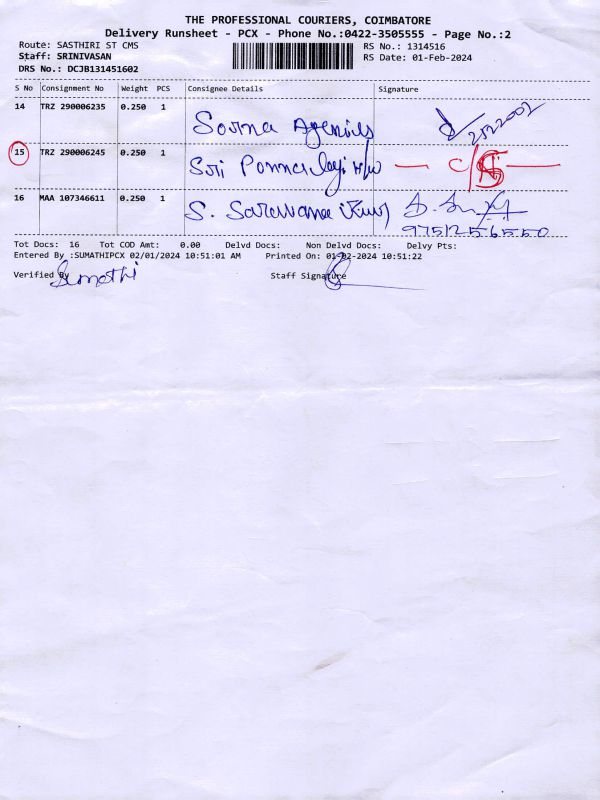 THE PROFESSIONAL COURIERS, COIMBATORE
Delivery Runsheet - PCX - Phone No.:0422-3505555 - Page No.:2
Route: SASTHIRI ST CMS
RS No.: 1314516
Staff: SRINIVASAN
RS Date: 01-Feb-2024
DRS No.: DCJB131451602
S No Consignment No Weight PCS Consignee Details Signature
14 TRZ 290006235 0.250 1 Sorna Agencies
15 TRZ 290006245 0.250 1 Sri H/W C/S
16 MAA 107346611 0.250 1 S. Saravana
9751256550
Tot Docs: 16 Tot COD Amt: 0.00 Delvd Docs: Non Delvd Docs: Delvy Pts:
Entered By :SUMATHIPCX 02/01/2024 10:51:01 AM Printed On: 01-02-2024 10:51:22
Verified By Sumathi Staff Signature